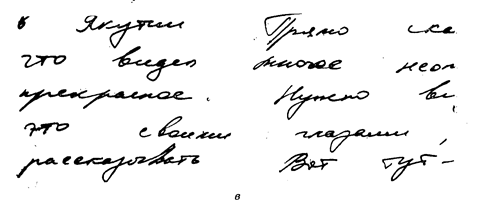 в Якутии Прямо ска
что видел многое неоп
прекрасное. Нужно ви
это своими глазами,
рассказывать Вот тут-
в